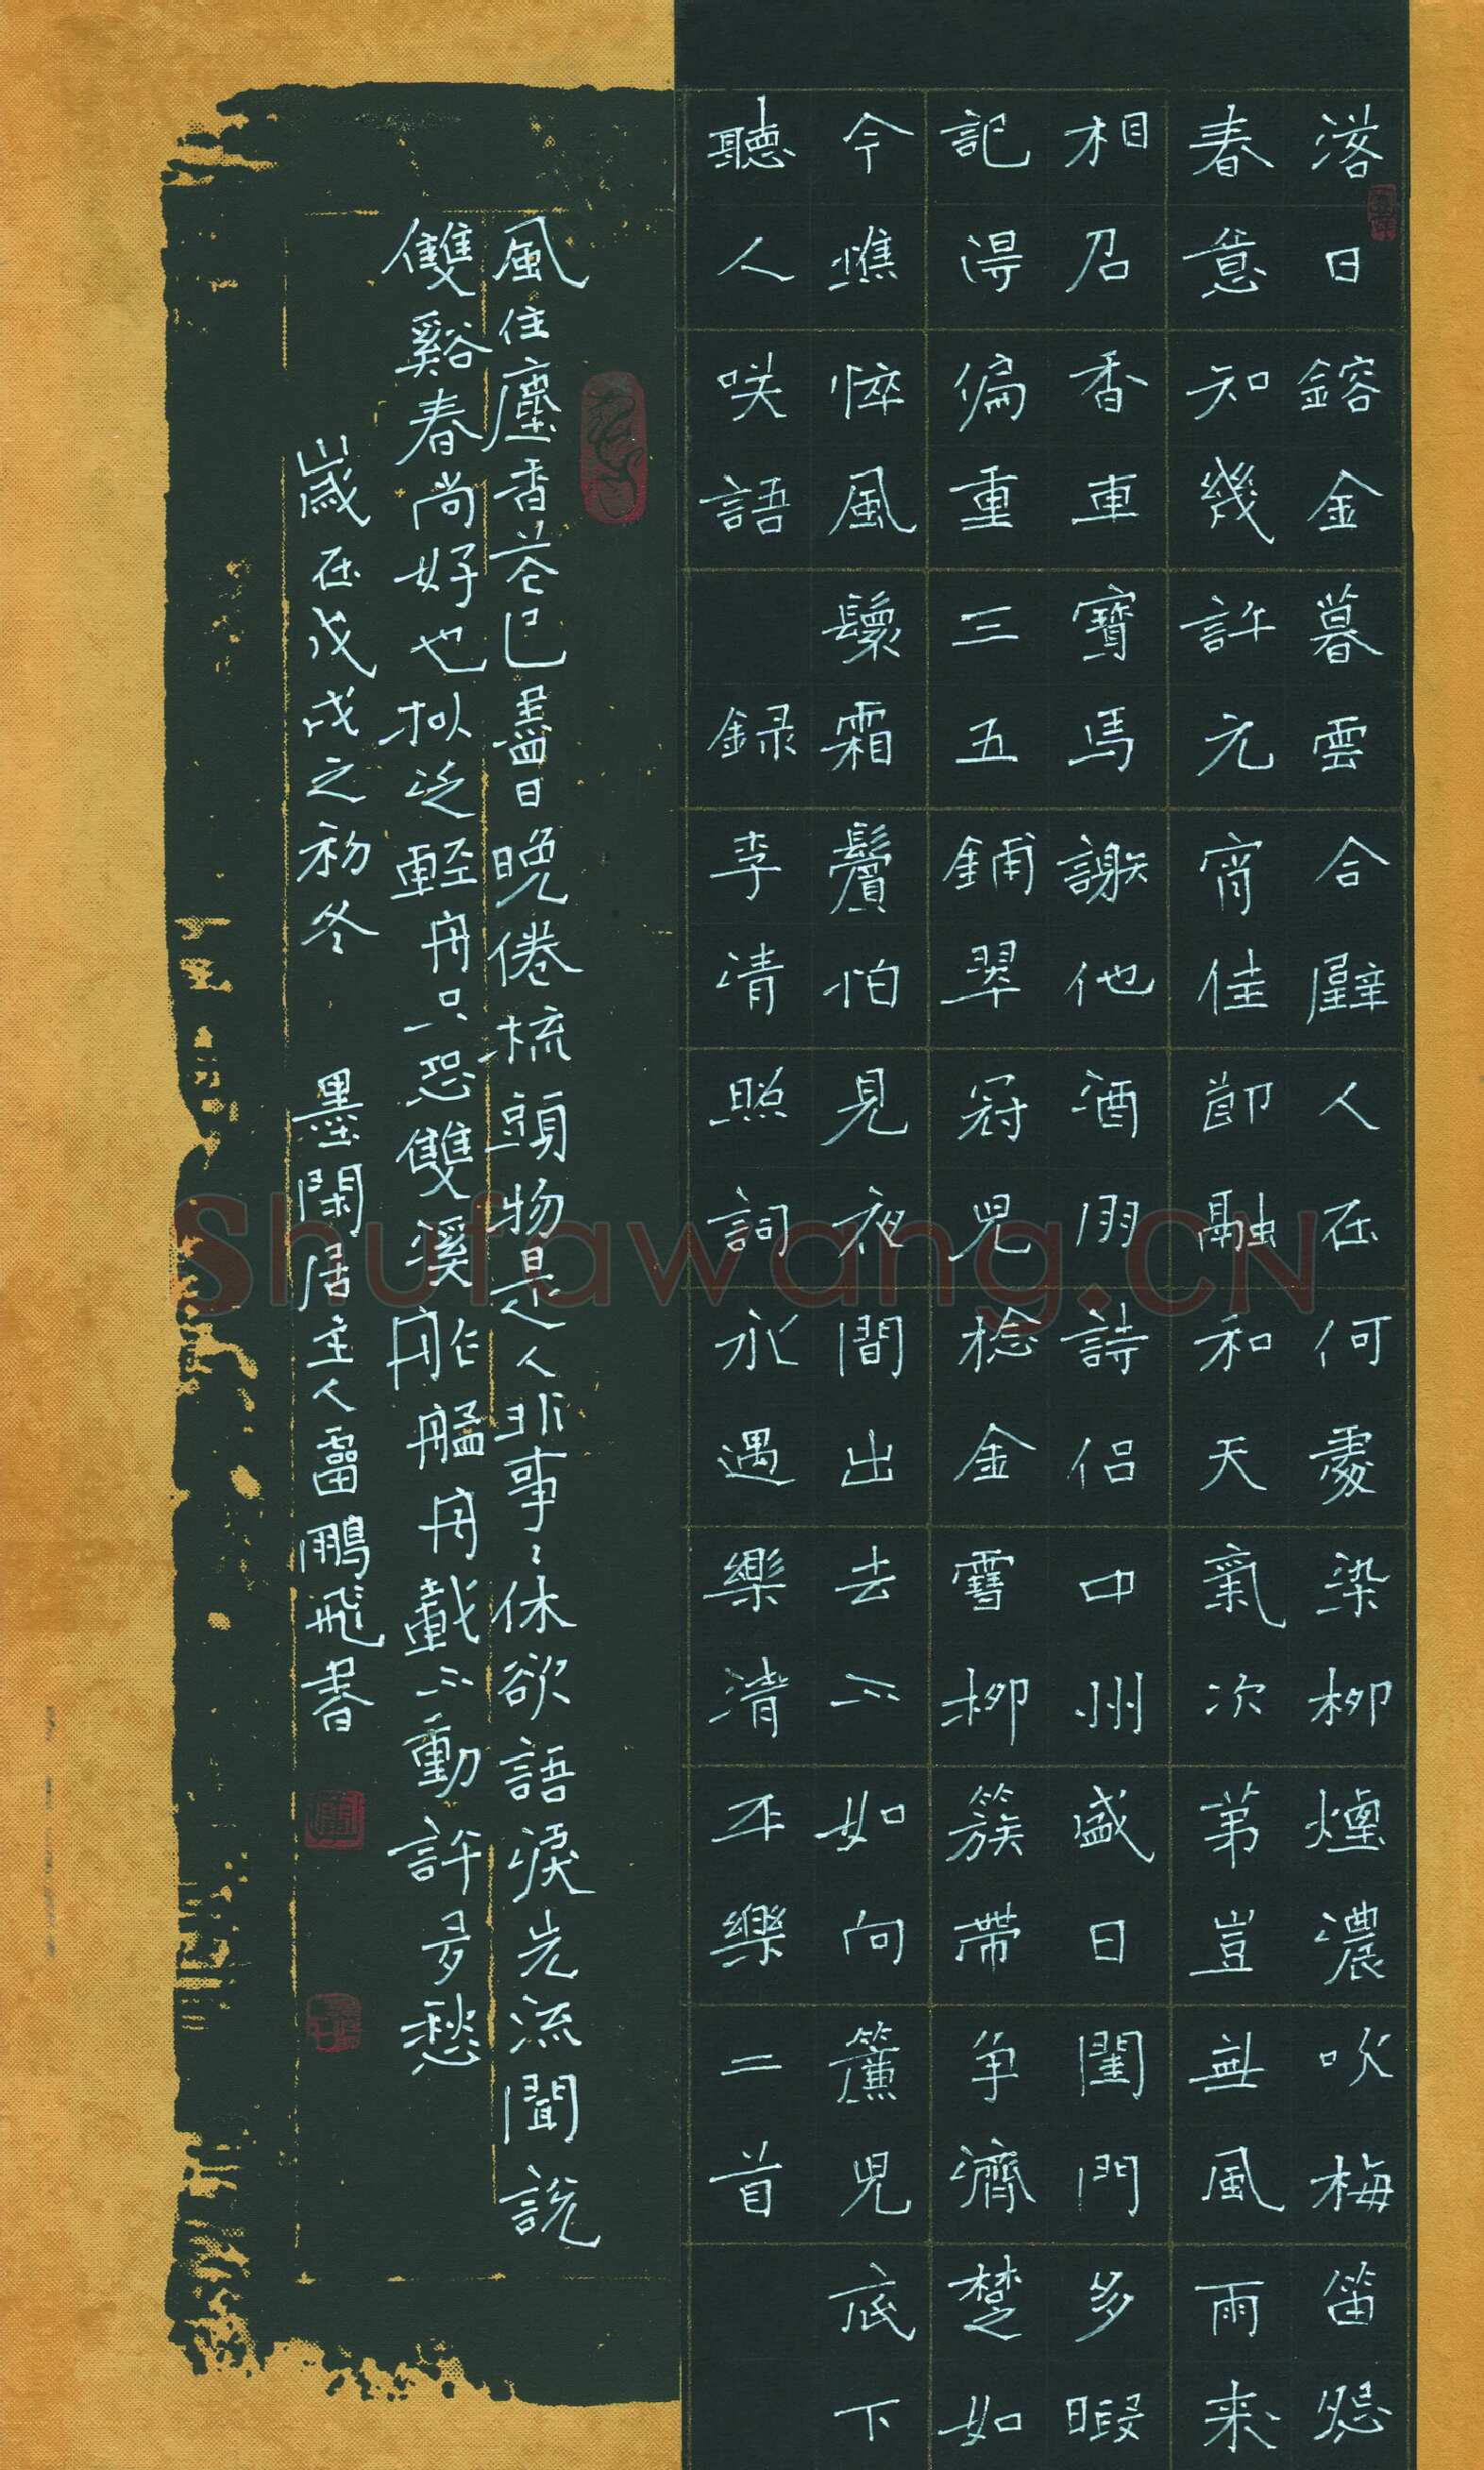 落日鎔金暮雲合壁人在何處染柳煙濃吹梅笛怨
春意知幾許元宵佳節融和天氣次第豈無風雨来
相召香車寶馬謝他酒朋詩侣中州盛日閨門多暇
記得偏重三五鋪翠冠兒捻金雪柳簇帶争濟楚如
今憔悴風鬟霜鬢怕見夜間出去不如向簾兒底下
聽人咲語 録李清照詞永遇樂清平樂二首
風住塵香花已盡日晚倦梳頭物是人非事事休欲語淚先流聞說
雙谿春尚好也拟泛輕舟只恐雙溪舴艋舟載不動許多愁
歲在戊戌之初冬 墨閑居主人雷鵬飛書
Shufawang.CN